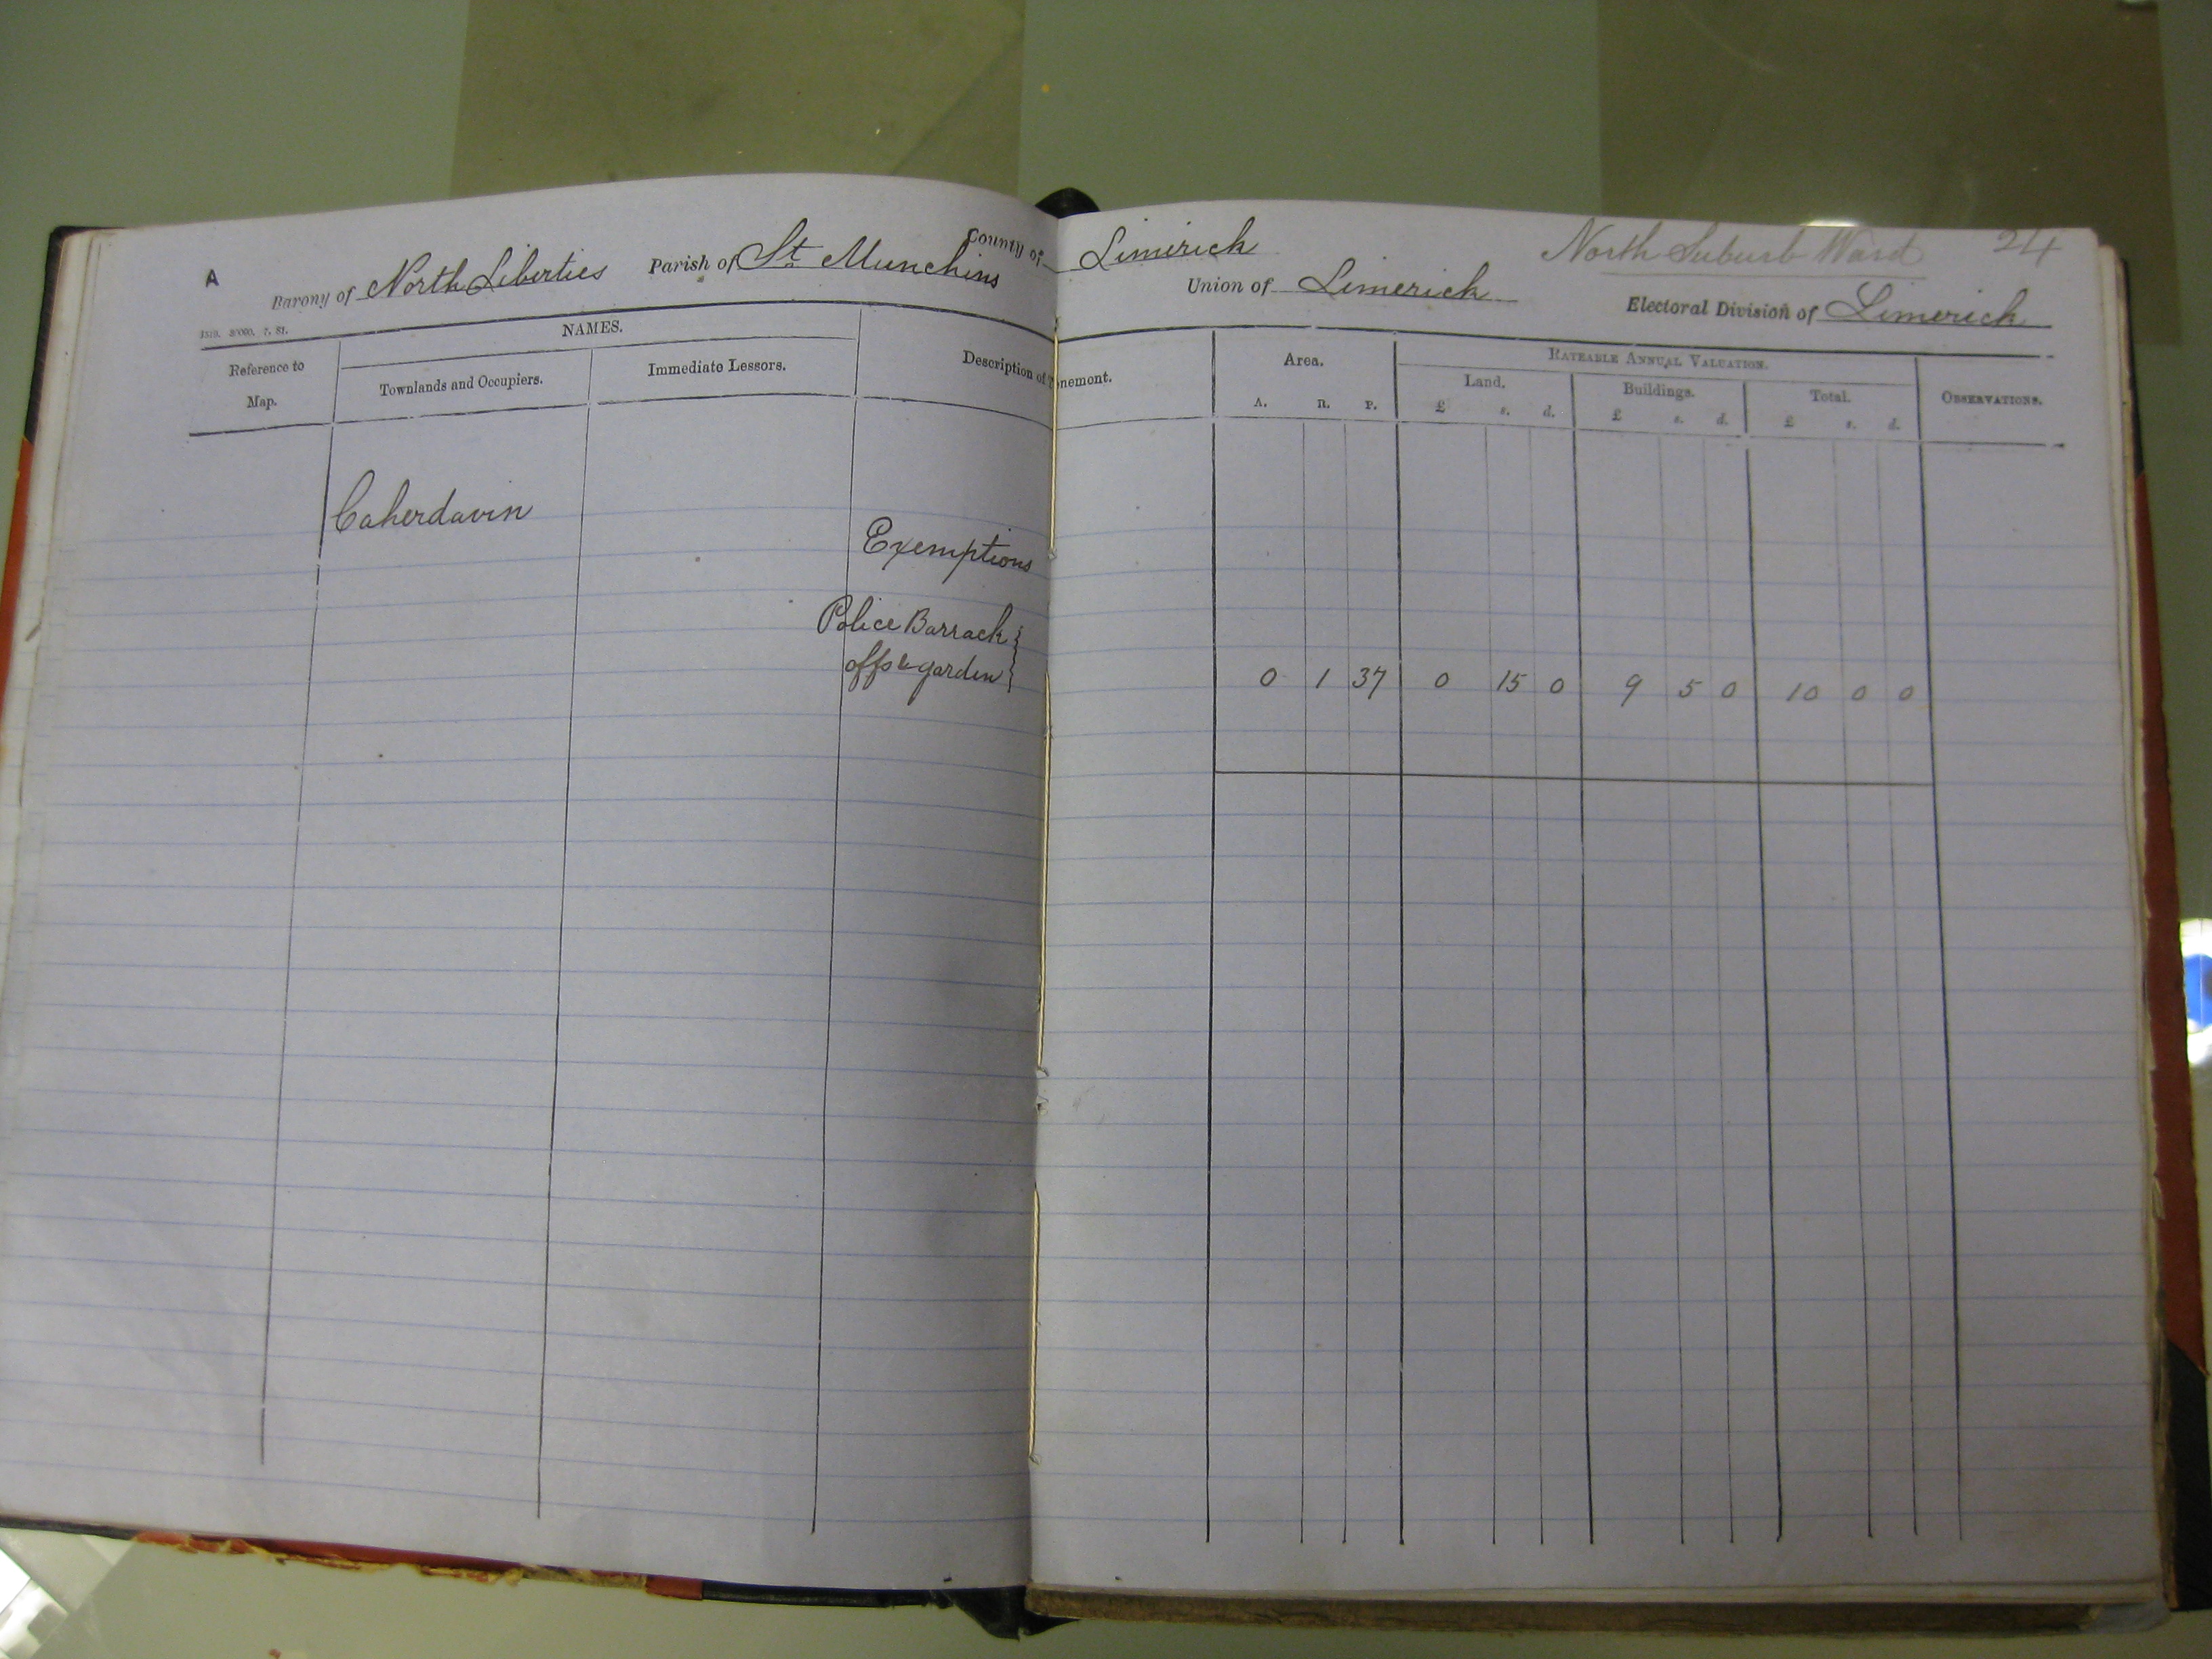 North Suburb Ward 24
County of Limerick
A Barony of North Liberties Parish of St Munchins Union of Limerick Electoral Division of Limerick
NAMES. RATEABLE ANNUAL VALUATION.
Reference to Map. Townlands and Occupiers. Immediate Lessors. Description of Tenement. Area. Land. Buildings. Total. OBSERVATIONS.
A. R. P. £ s. d. £ s. d. £ s. d.
Caherdavin
Exemptions
Police Barrack
offs & garden 0 1 37 0 15 0 9 5 0 10 0 0